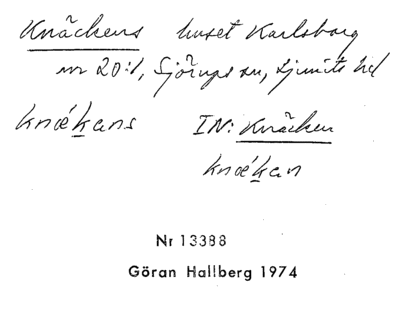 Knäckens huset Karlsborg
nr 20:1, Sjörups sn, Ljunits hd
knǽkans IN: Knäcken
knǽkan
Nr 13388
Göran Hallberg 1974